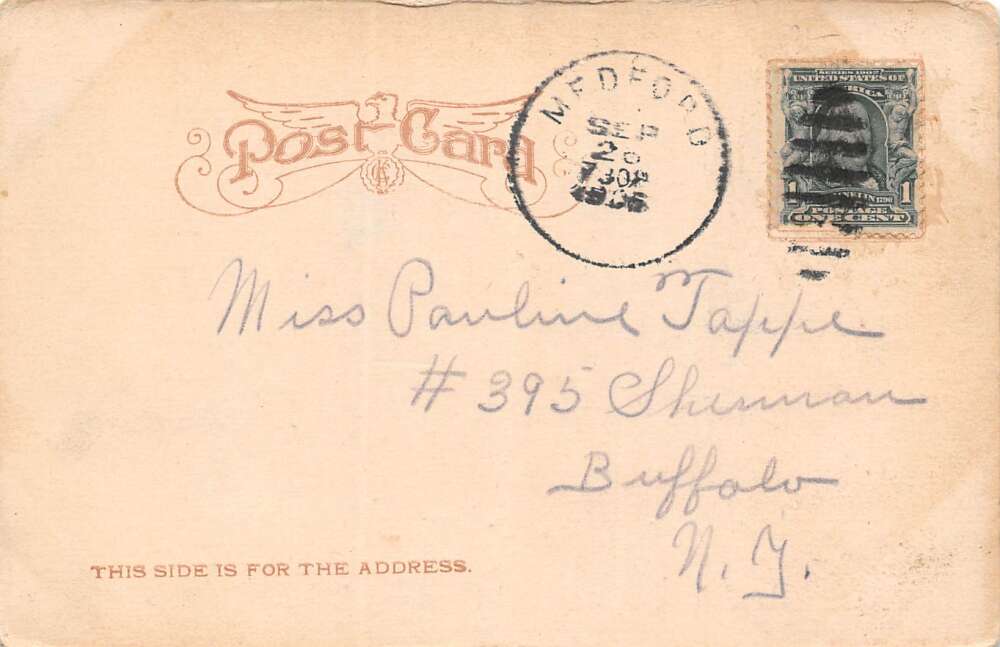 Post Card
MEDFORD
SEP
730P
SERIES 1902
UNITED STATES OF
AMERICA
1 1
FRANKLIN 1790
POSTAGE
ONE CENT
Miss Pauline Tappe
# 395 Sherman
Buffalo
N. Y.
THIS SIDE IS FOR THE ADDRESS.